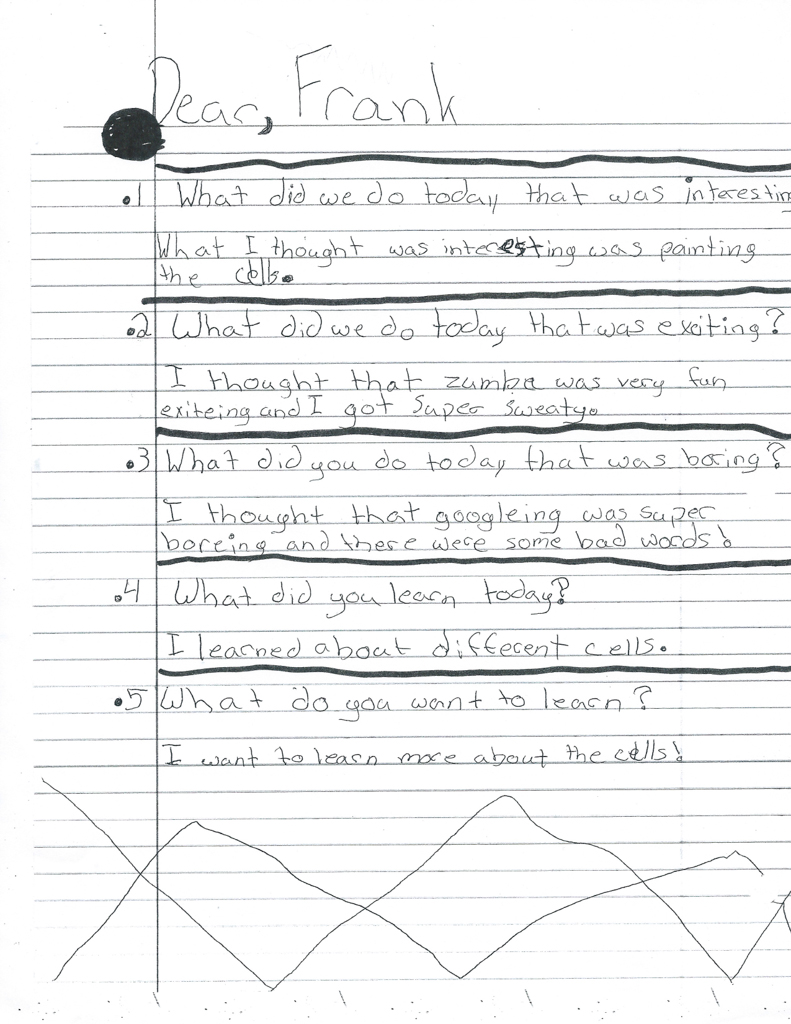 Dear, Frank
.1 What did we do today that was interestin
What I thought was interesting was painting
the cells.
.2 What did we do today that was exciting?
I thought that zumba was very fun
exiteing and I got super sweaty.
.3 What did you do today that was boring?
I thought that googleing was super
boreing and there were some bad words!
.4 What did you learn today?
I learned about different cells.
.5 What do you want to learn?
I want to learn more about the cells!